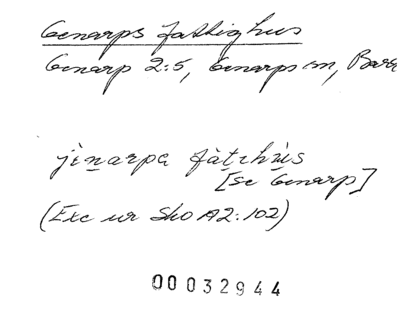 Genarps fattighus
Genarp 2:5, Genarps sn, Bara
jènarpa fàtihùs
[se Genarp]
(Exc ur Sko A2:102)
00032944